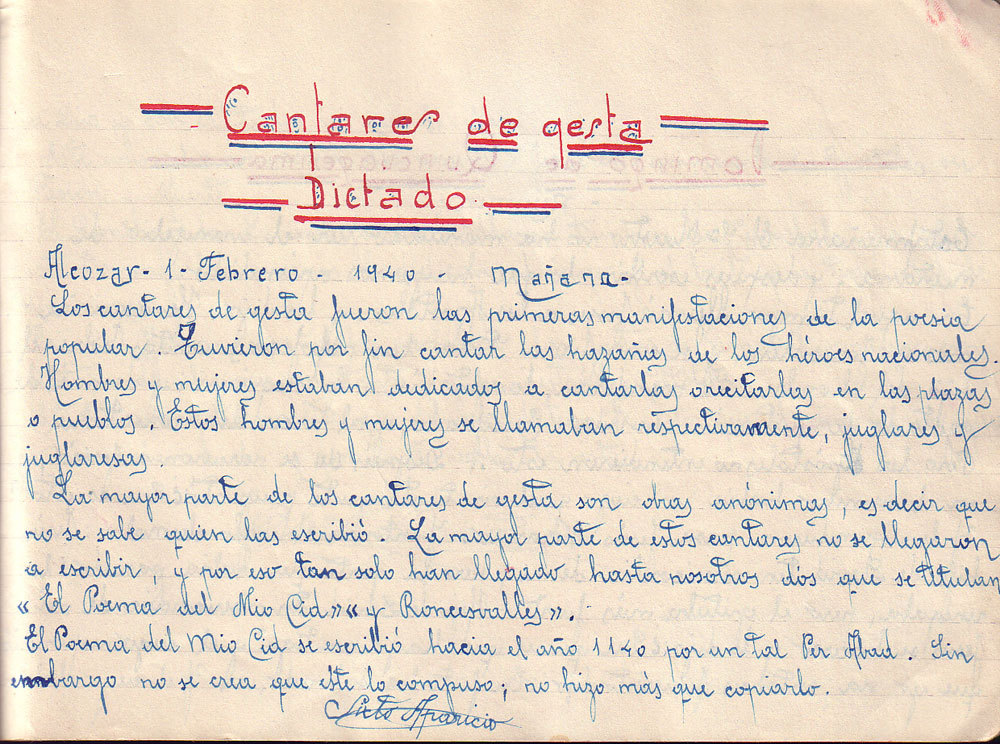 Cantares de gesta
Dictado
Alcozar - 1 - Febrero - 1940 - Mañana -
Los cantares de gesta fueron las primeras manifestaciones de la poesia
popular. Tuvieron por fin cantar las hazañas de los héroes nacionales.
Hombres y mujeres estaban dedicados a cantarlas o recitarlas en las plazas
o pueblos. Estos hombres y mujeres se llamaban respectivamente, juglares y
juglaresas.
La mayor parte de los cantares de gesta son obras anónimas, es decir que
no se sabe quien las escribió La mayor parte de estos cantares no se llegaron
a escribir y por eso tan solo han llegado hasta nosotros dos que se titulan
« El Poema del Mio Cid» « y Roncesvalles».
El Poema del Mio Cid se escribió hacia el año 1140 por un tal Per Abad. Sin
embargo no se crea que este lo compuso; no hizo más que copiarlo.
Aparicio